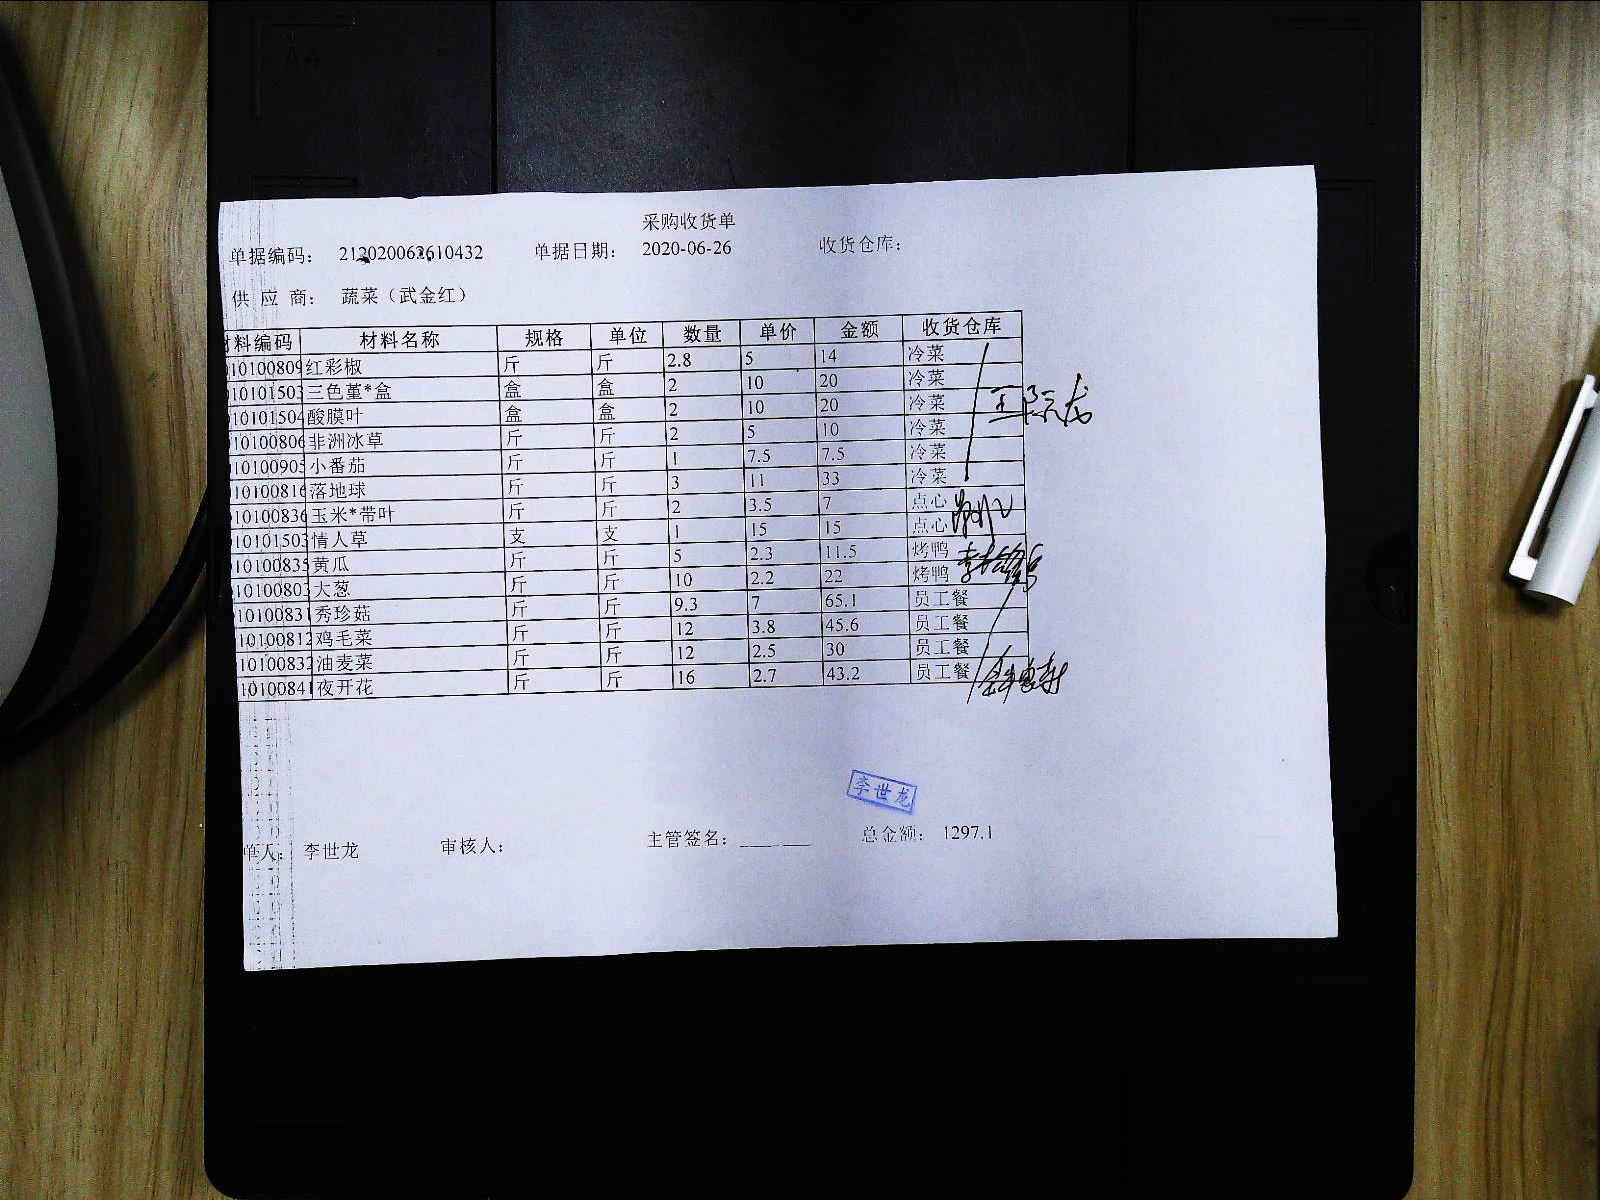 采购收货单
单据编码： 212020062610432 单据日期： 2020-06-26 收货仓库：
供 应 商： 蔬菜（武金红）
材料编码 材料名称 规格 单位 数量 单价 金额 收货仓库
10100809 红彩椒 斤 斤 2.8 5 14 冷菜
10101503 三色堇*盒 盒 盒 2 10 20 冷菜
10101504 酸膜叶 盒 盒 2 10 20 冷菜
10100806 非洲冰草 斤 斤 2 5 10 冷菜
10100905 小番茄 斤 斤 1 7.5 7.5 冷菜
10100816 落地球 斤 斤 3 11 33 冷菜
10100836 玉米*带叶 斤 斤 2 3.5 7 点心
10101503 情人草 支 支 1 15 15 点心
10100835 黄瓜 斤 斤 5 2.3 11.5 烤鸭
10100803 大葱 斤 斤 10 2.2 22 烤鸭
10100831 秀珍菇 斤 斤 9.3 7 65.1 员工餐
10100812 鸡毛菜 斤 斤 12 3.8 45.6 员工餐
10100832 油麦菜 斤 斤 12 2.5 30 员工餐
10100841 夜开花 斤 斤 16 2.7 43.2 员工餐
李世龙
单人： 李世龙 审核人： 主管签名： 总金额： 1297.1